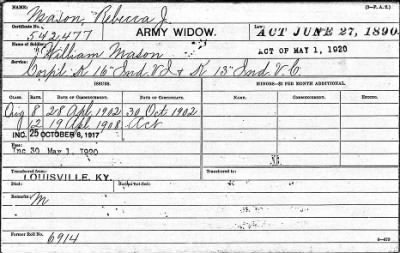 NAME: Mason, Rebecca J. (3-P.A.S.)
Certificate No. 542,477 ARMY WIDOW. Law, ACT JUNE 27, 1890
Name of Soldier: William Mason ACT OF MAY 1, 1920
Service: Corpl K 16" Ind. V I & K 13" Ind V. C.
ISSUES. MINORS—$2 PER MONTH ADDITIONAL.
CLASS. RATE. DATE OF COMMENCEMENT. DATE OF CERTIFICATE. NAME. COMMENCING. ENDING.
Orig 8 28 Apl. 1902 30 Oct 1902
12 19 Apl. 1908 Act
INC. 25 OCTOBER 6, 1917
Inc 30 May 1, 1920
Transferred from LOUISVILLE, KY. Transferred to
Died:
Remarks: M
Former Roll No. 6914